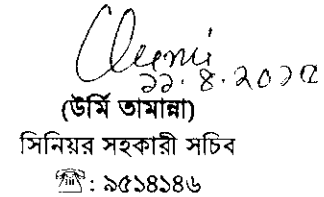 ২২.৪.২০১৫
(উর্মি তামান্না)
সিনিয়র সহকারী সচিব
☎: ৯৫১৪১৪৬